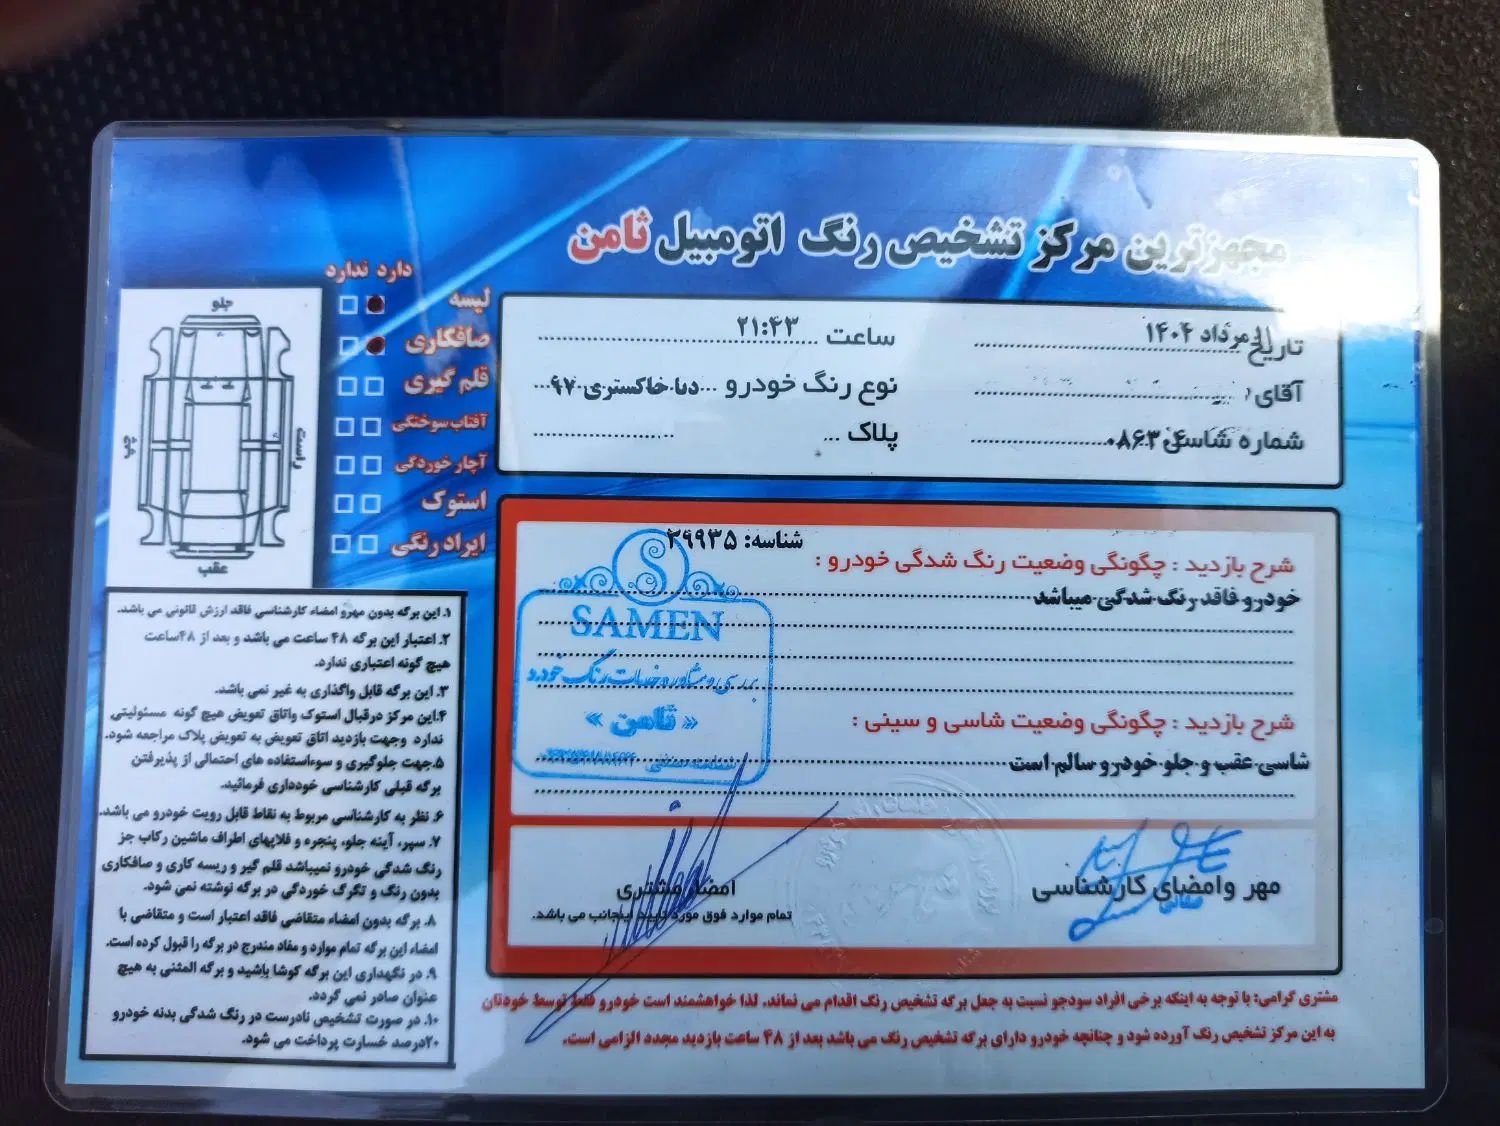 مجهزترین مرکز تشخیص رنگ اتومبیل ثامن
تاریخ مرداد ۱۴۰۴
ساعت ۲۱:۴۳
آقای
نوع رنگ خودرو دنا خاکستری ۹۷
شماره شاسی
پلاک
دارد ندارد
لیسه
صافکاری
قلم گیری
آفتاب سوختگی
آچار خوردگی
استوک
ایراد رنگی
جلو
راست
چپ
عقب
شناسه: ۳۹۹۳۵
شرح بازدید : چگونگی وضعیت رنگ شدگی خودرو :
خودرو فاقد رنگ شدگی میباشد
SAMEN
بررسی و مشاوره خدمات رنگ خودرو
« ثامن »
شرح بازدید : چگونگی وضعیت شاسی و سینی :
شاسی عقب و جلو خودرو سالم است
مهر وامضای کارشناسی
امضاء مشتری
تمام موارد فوق مورد تایید اینجانب می باشد.
۱. این برگه بدون مهرو امضاء کارشناسی فاقد ارزش قانونی می باشد.
۲. اعتبار این برگه ۴۸ ساعت می باشد و بعد از ۴۸ساعت
هیچ گونه اعتباری ندارد.
۳. این برگه قابل واگذاری به غیر نمی باشد.
۴.این مرکز درقبال استوک واتاق تعویض هیچ گونه مسئولیتی
ندارد وجهت بازدید اتاق تعویض به تعویض پلاک مراجعه شود.
۵.جهت جلوگیری و سوءاستفاده های احتمالی از پذیرفتن
برگه قبلی کارشناسی خودداری فرمائید.
۶. نظر به کارشناسی مربوط به نقاط قابل رویت خودرو می باشد.
۷. سپر، آینه جلو، پنجره و فلاپهای اطراف ماشین رکاب جز
رنگ شدگی خودرو نمیباشد قلم گیر و ریسه کاری و صافکاری
بدون رنگ و تگرگ خوردگی در برگه نوشته نمی شود.
۸. برگه بدون امضاء متقاضی فاقد اعتبار است و متقاضی با
امضاء این برگه تمام موارد و مفاد مندرج در برگه را قبول کرده است.
۹. در نگهداری این برگه کوشا باشید و برگه المثنی به هیچ
عنوان صادر نمی گردد.
۱۰. در صورت تشخیص نادرست در رنگ شدگی بدنه خودرو
۲۰درصد خسارت پرداخت می شود.
مشتری گرامی: با توجه به اینکه برخی افراد سودجو نسبت به جعل برگه تشخیص رنگ اقدام می نماند، لذا خواهشمند است خودرو فقط توسط خودتان
به این مرکز تشخیص رنگ آورده شود و چنانچه خودرو دارای برگه تشخیص رنگ می باشد بعد از ۴۸ ساعت بازدید مجدد الزامی است.